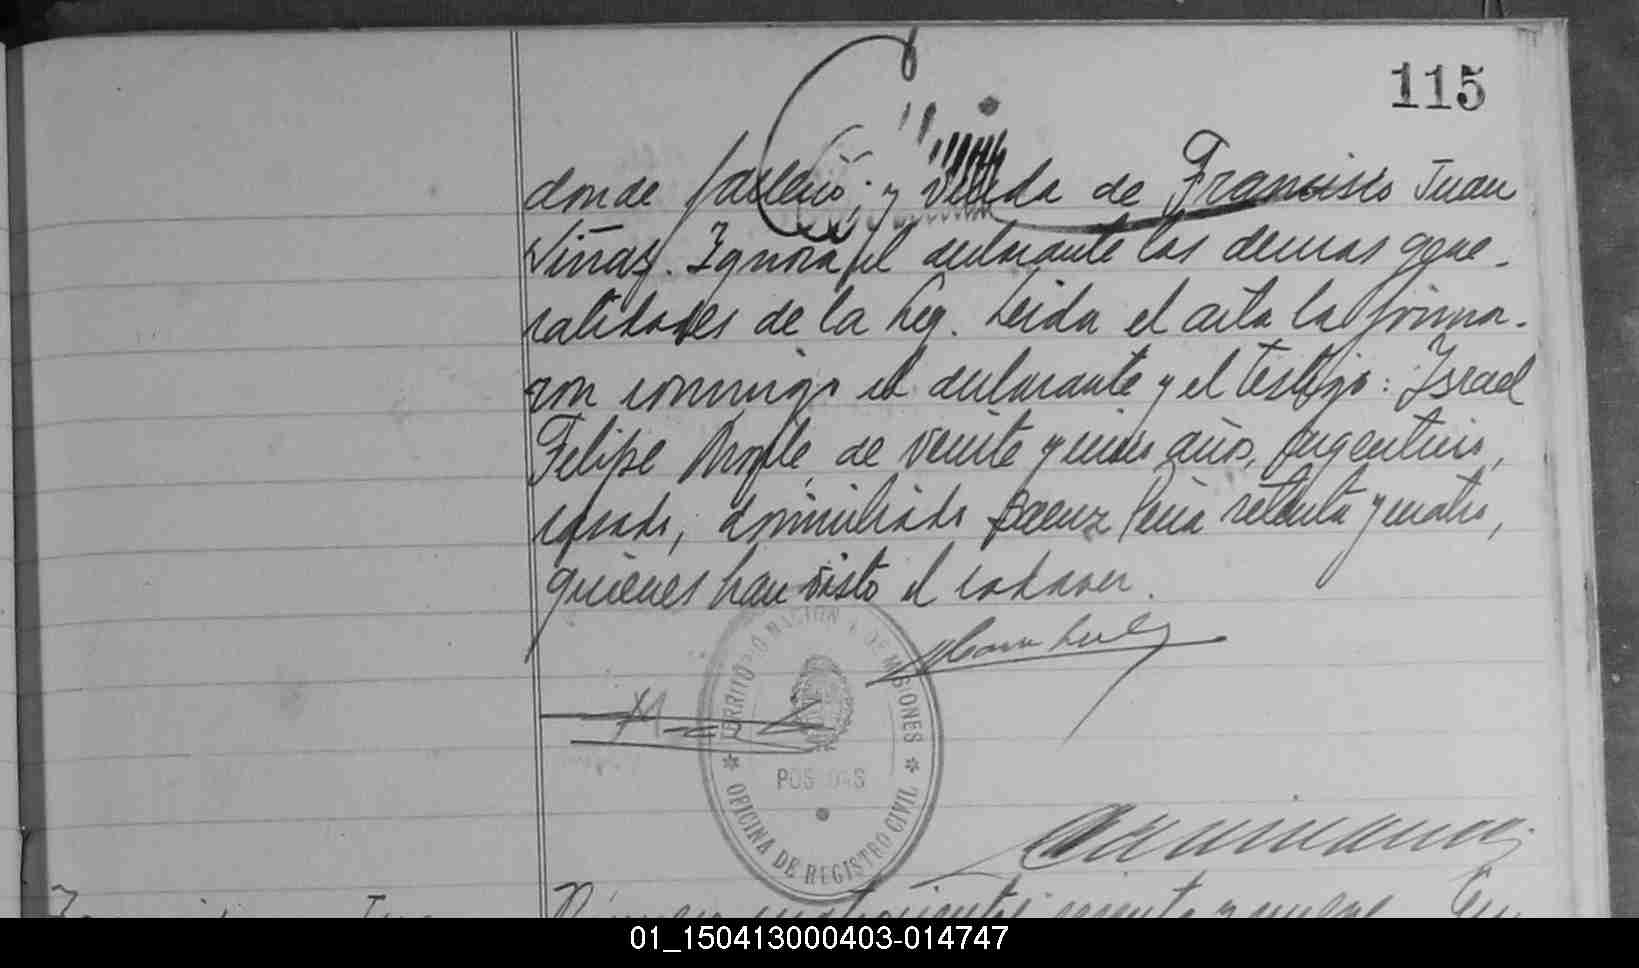 115
donde falleció; y viuda de Francisco Juan
Viñas. Ignora el declarante las demas gene-
ralidades de la Ley. Leida el acta la firma-
ron conmigo el declarante y el testigo: Israel
Felipe de veinte y seis años, argentino,
casado, domiciliado Saenz Peña setenta y cuatro,
quienes han visto el cadaver.
TERRITORIO NACIONAL DE MISIONES
POSADAS
* OFICINA DE REGISTRO CIVIL *
Número cuatrocientos y nueve. En
01_150413000403-014747